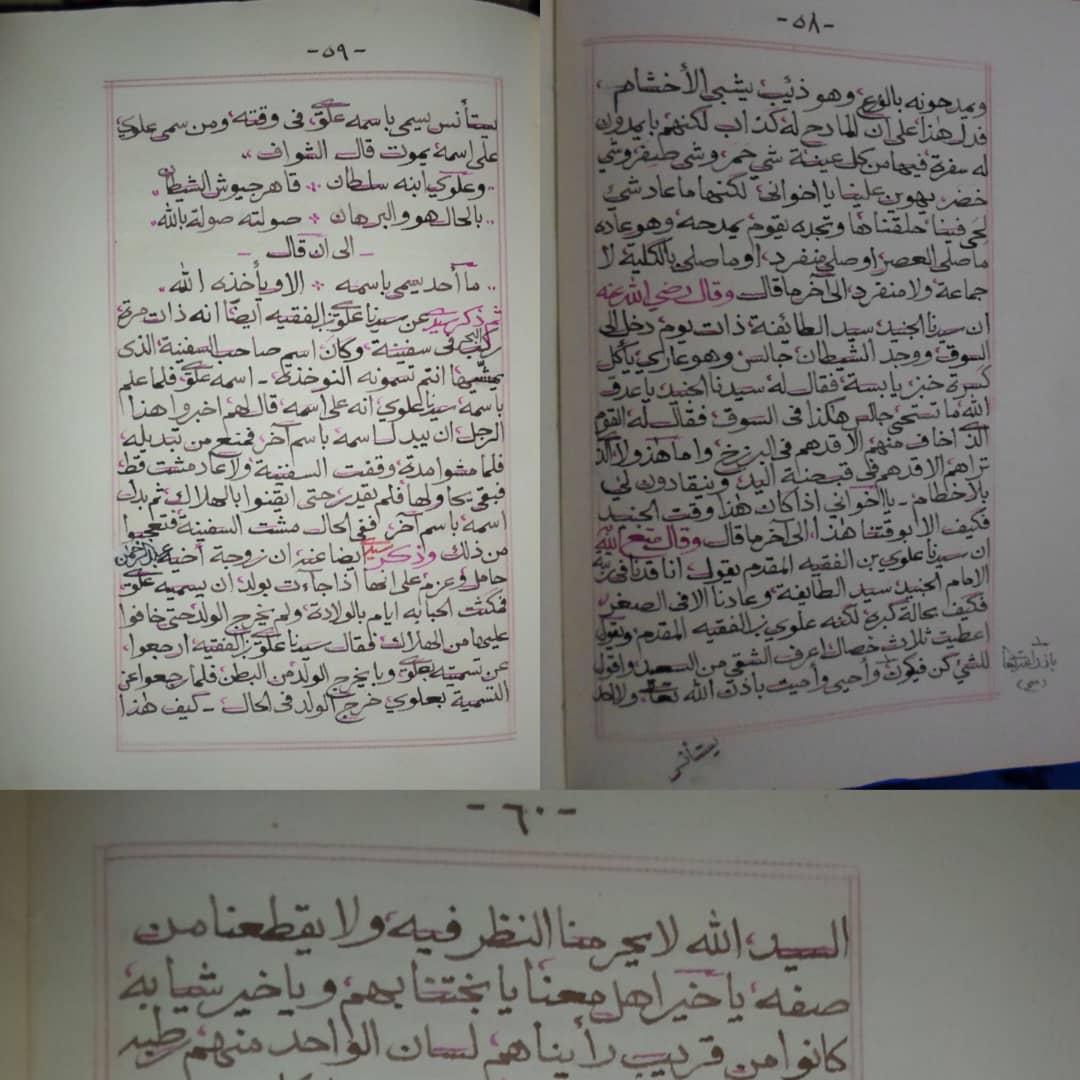 -٥٨-
ويمدحونه بالورع وهو ذئيب يشبي الأخشام
فدل هذا على ان المادح له كذاب لكنهم بايمدون
له سفرة فيها من كل عينة شي حمر وشي صفر وشي
خضر يهون علينا يا اخواني لكنها ما عاد شئ
لحى فينا حلقناها وتجده يقوم يمدحه وهو عاده
ما صلى العصر او صلى منفرد، او ما صلى بالكلية لا
جماعة ولا منفرد الى آخر ما قال وقال رضي الله عنه
ان سيدنا الجنيد سيد الطائفة ذات يوم دخل الى
السوق ووجد الشيطان جالس وهو عاري يأكل
كسرة خبز يابسة فقال له سيدنا الجنيد يا عدو
الله ما تستحي جالس هكذا في السوق فقال له القوم
الذي اخاف منهم الا قدهم في البرزخ واما هذولا الذي
تراهم الا قدهم في قبضة اليد وينقادون لي
بلا خطام - يا اخواني اذا كان هذا وقت الجنيد
فكيف الا بوقتنا هذا، الى آخر ما قال وقال متع الله به
ان سيدنا علوي بن الفقيه المقدم يقول انا قدنا في رتبة
الامام الجنيد سيد الطايفة وعادنا الا في الصغر
فكيف بحالة كبره لكنه علوي بن الفقيه المقدم ويقول
اعطيت ثلاث خصال اعرف الشقي من السعيد واقول
للشي كن فيكون وأحيي وأميت باذن الله تعالى ولا احد
يستأنس
-٥٩-
يستأنس يسمى باسمه علوي في وقته ومن سمى علوي
على اسمه يموت قال الشواف
وعلوي ابنه سلطان ∴ قاهر جيوش الشيطان
بالحال هو والبرهان ∴ صولته صولة بالله
- الى ان قال -
ما أحد يسمى باسمه ∴ الا ويأخذه الله
ثم ذكر سيدي عن سيدنا علوي بن الفقيه ايضًا انه ذات مرة
ركب البحر في سفينة وكان اسم صاحب السفينة الذي
يمشيها انتم تسمونه النوخذه - اسمه علوي فلما علم
باسمه سيدنا علوي انه على اسمه قال لهم اخبروا هذا
الرجل ان يبدل اسمه باسم آخر فمنع من تبديله
فلما مشوا مدة وقفت السفينة ولا عاد مشت قط
فبقى يحاولها فلم يقدر حتى ايقنوا بالهلاك ثم بدل
اسمه باسم آخر، ففي الحال مشت السفينة فتعجبوا
من ذلك وذكر سيدي ايضا عنه ان زوجة أخيه عبدالرحمن
حامل وعزم على انها اذا جاءت بولد ان يسميه علوي
فمكثت الحبابه ايام بالولادة ولم يخرج الولد حتى خافوا
عليها من الهلاك فقال سيدنا علوي بن الفقيه ارجعوا،
عن تسميته علوي وبايخرج الولد من البطن فلما رجعوا عن
التسمية بعلوي خرج الولد في الحال - كيف هذا
-٦٠-
السيد، الله لا يحرمنا النظر فيه ولا يقطعنا من
صفه يا خير اهل معنا يا بختنا بهم ويا خير شيابه
كانوا من قريب رأيناهم لسان الواحد منهم رطبه